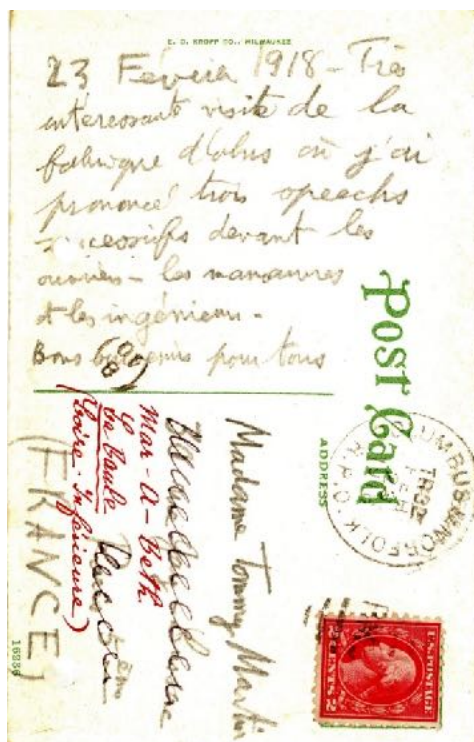 E. C. KROPP CO., MILWAUKEE
23 Février 1918 - Très
intéressant visite de la
fabrique d'obus où j'ai
prononcé trois speechs
successifs devant les
ouvriers - les manœuvres
et les ingénieurs -
Bons souvenirs pour tous
Post Card
ADDRESS
COLUMBUS & NORFOLK
R.P.O.
FEB
Madame Tommy Martin
Mar-A-Beth
La Baule
(Loire-Inférieure)
(FRANCE)
U.S. POSTAGE
2 CENTS 2
16936